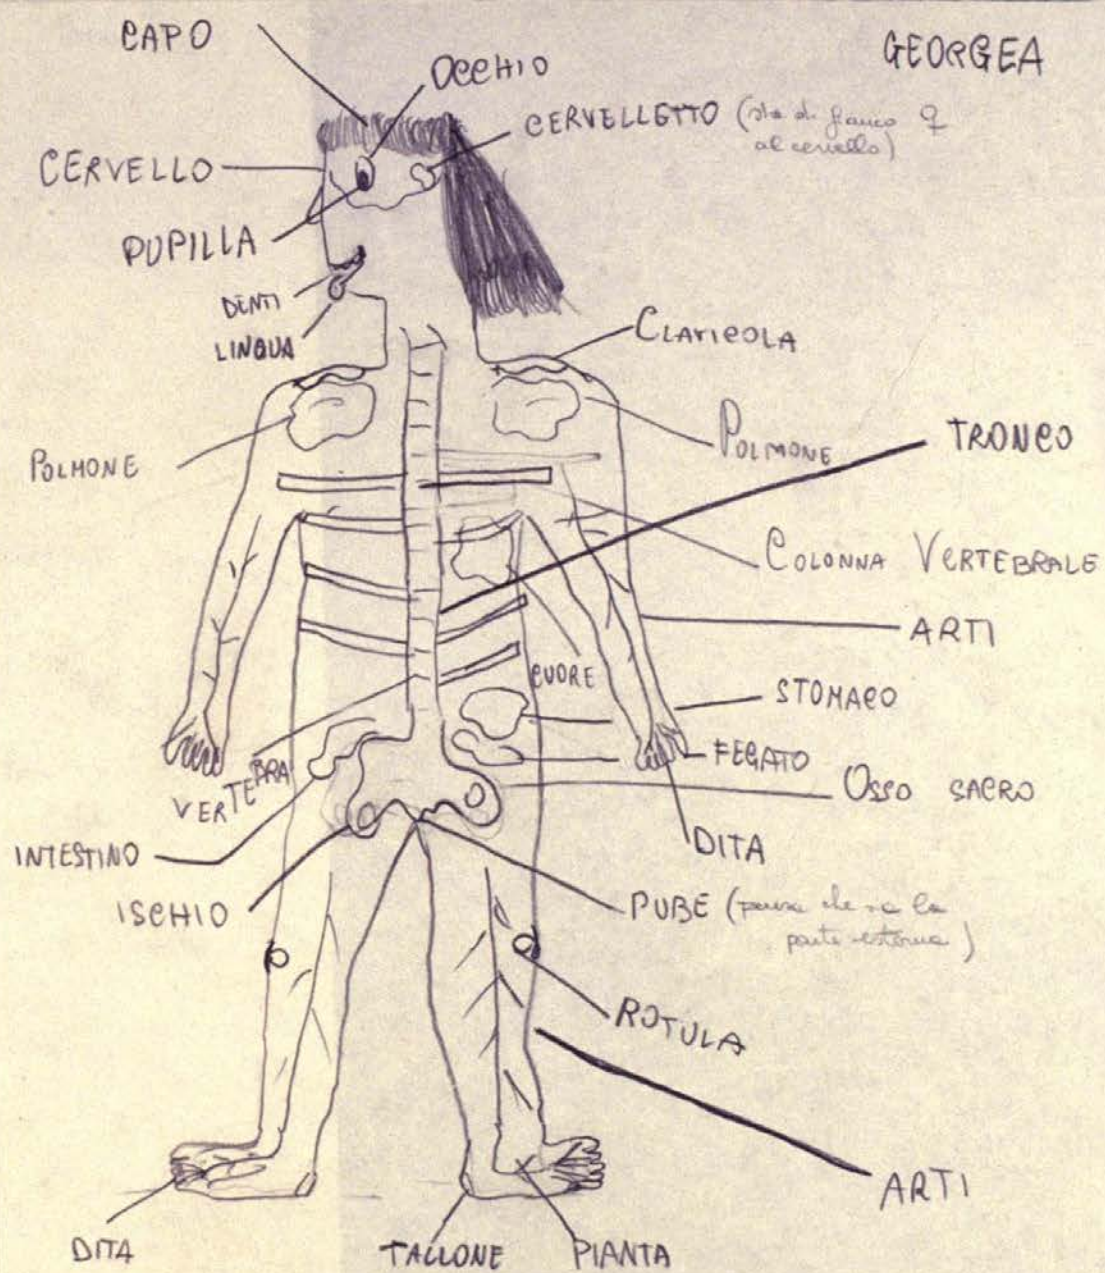 CAPO
GEORGEA
OCCHIO
CERVELLETTO (sta di fianco
al cervello)
CERVELLO
PUPILLA
DENTI
LINGUA
CLAVICOLA
POLMONE
POLMONE
TRONCO
COLONNA VERTEBRALE
ARTI
CUORE
STOMACO
FEGATO
VERTEBRA
OSSO SACRO
DITA
INTESTINO
ISCHIO
PUBE (pensa che sia la
parte esterna)
ROTULA
ARTI
DITA
TALLONE
PIANTA